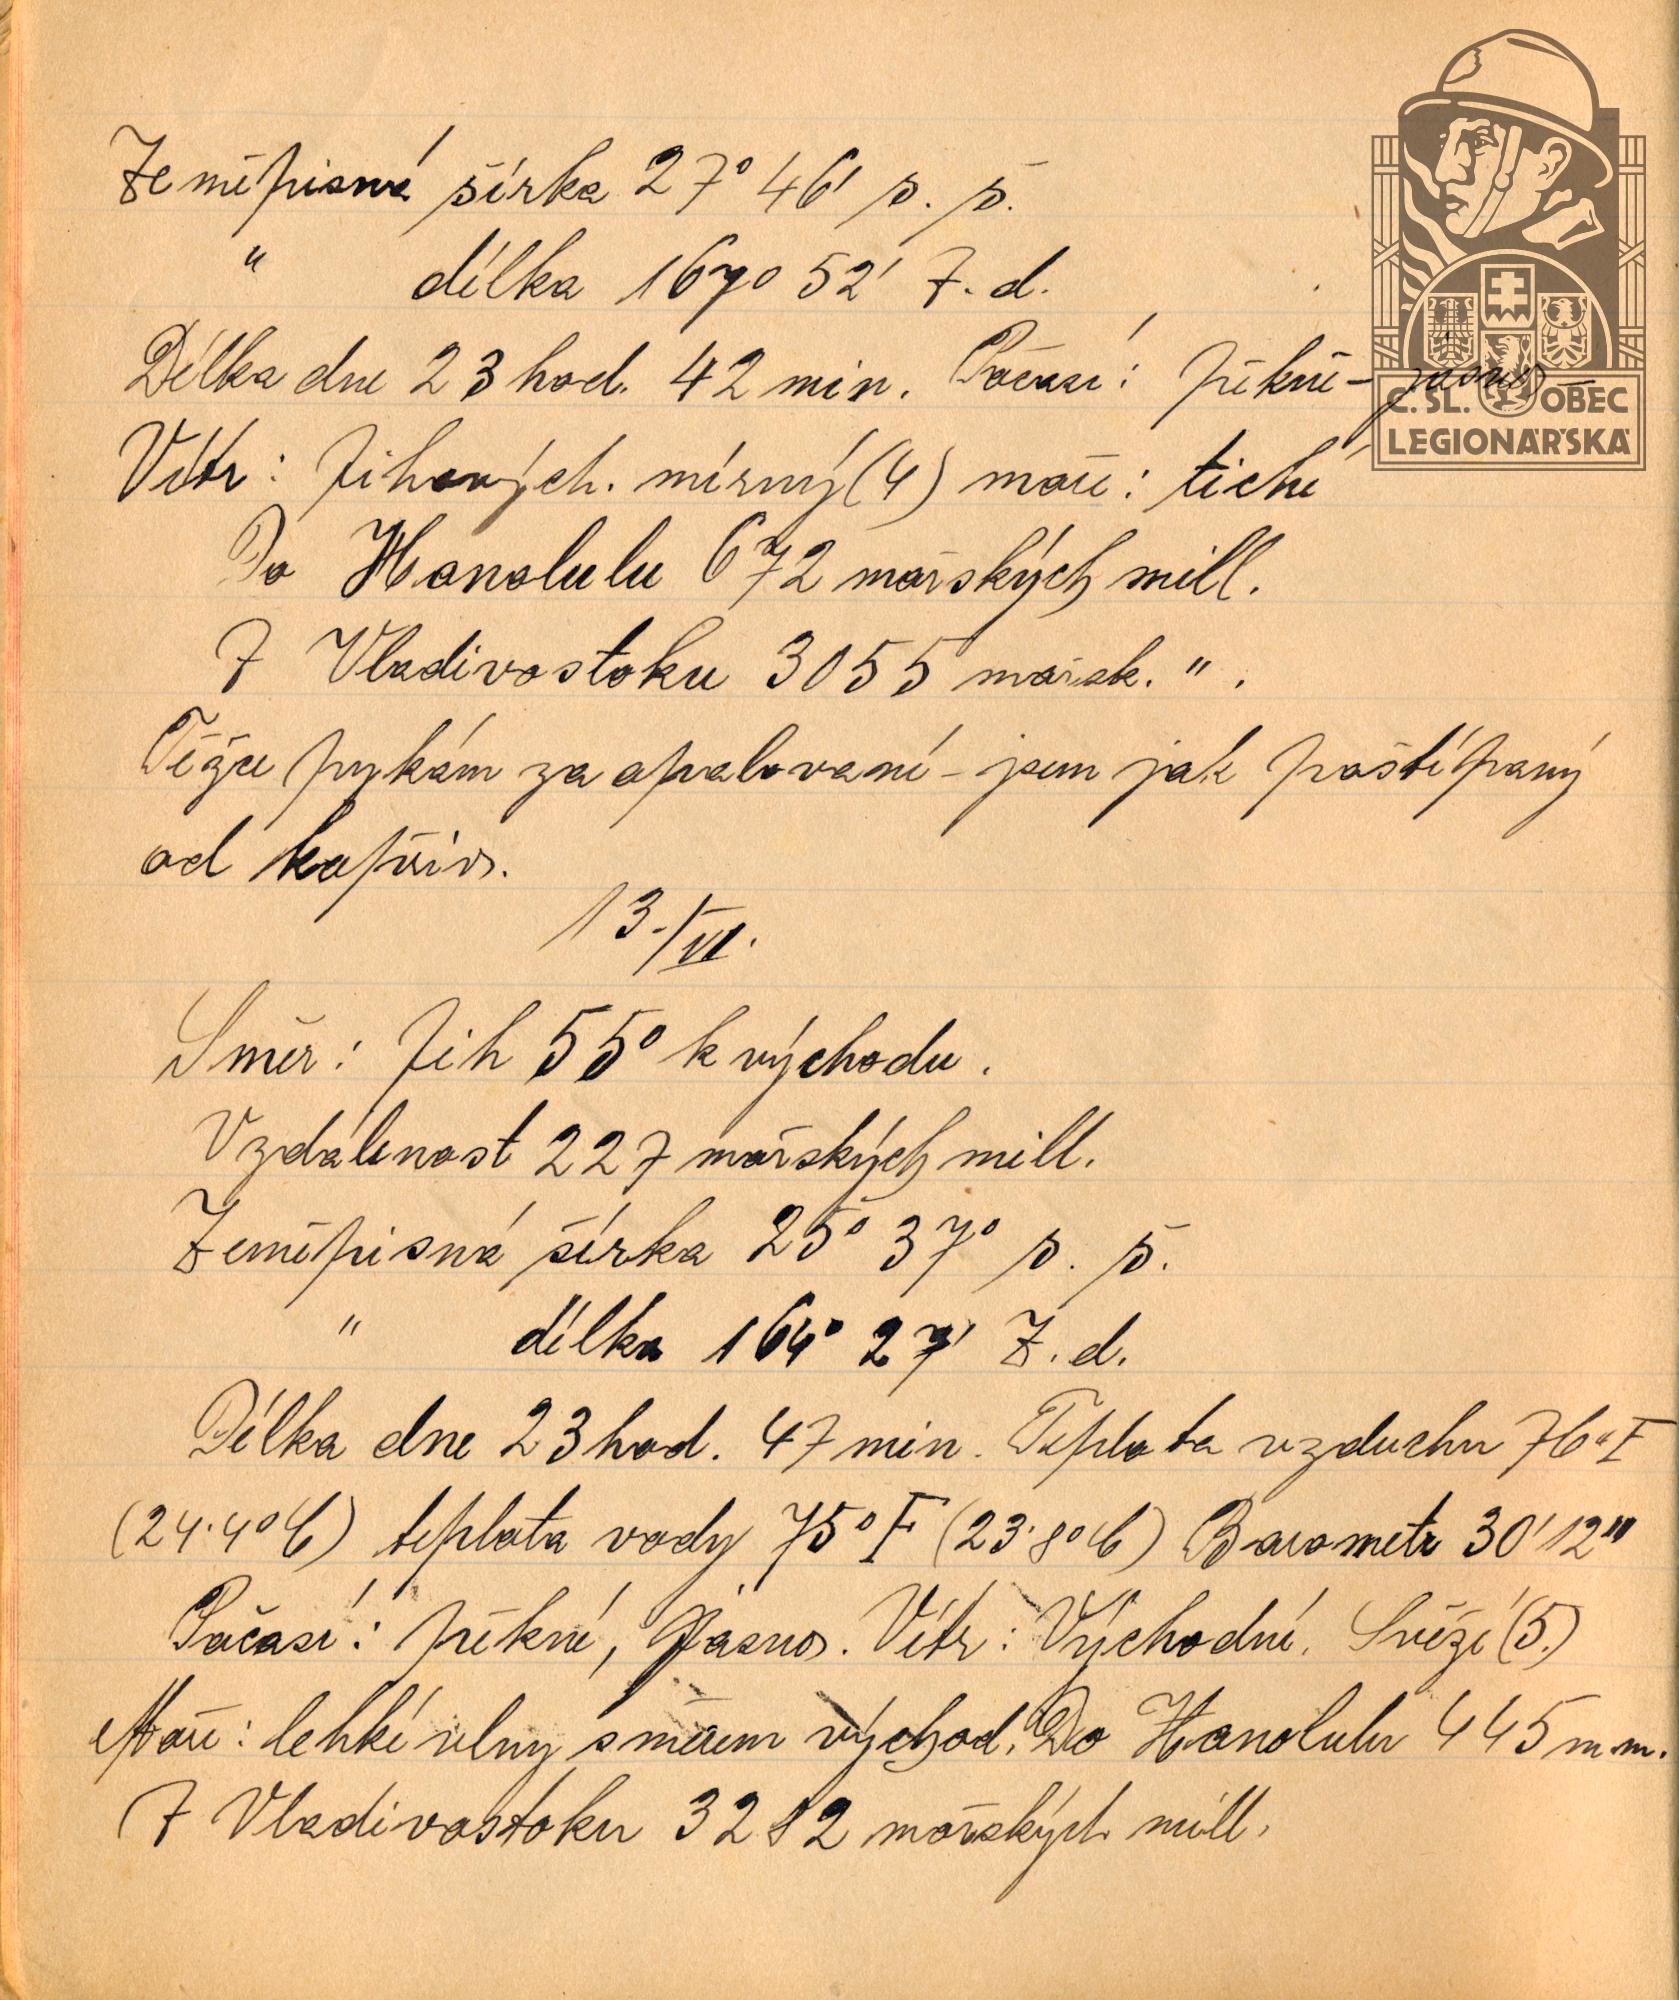 Zeměpisná šírka 27° 46' s. š.
" délka 167° 52' Z. d.
Délka dne 23 hod. 42 min. Počasí: pěkné - jasno
Vítr: Jihových. mírný (4) moře: tiché
Do Honolulu 672 mořských mill.
Z Vladivostoku 3055 mořsk. ".
Těžce pykám za opalovaní - jsem jak poštípaný
od kopřiv.
13./VI.
Směr: Jih 55° k východu.
Vzdálenost 227 mořských mill.
Zeměpisná šírka 25° 37° s. š.
" délka 164° 27' Z. d.
Délka dne 23 hod. 47 min. Teplota vzduchu 76° F
(24·4° C) teplota vody 75° F (23·8° C) Barometr 30' 12'''
Počasí: pěkné, jasno. Vítr: Východní. Svěží (5.)
Moře: lehké vlny směrem východ. Do Honolulu 445 m.m.
Z Vladivostoku 3282 mořských mill.
Č. SL. OBEC
LEGIONÁŘSKÁ